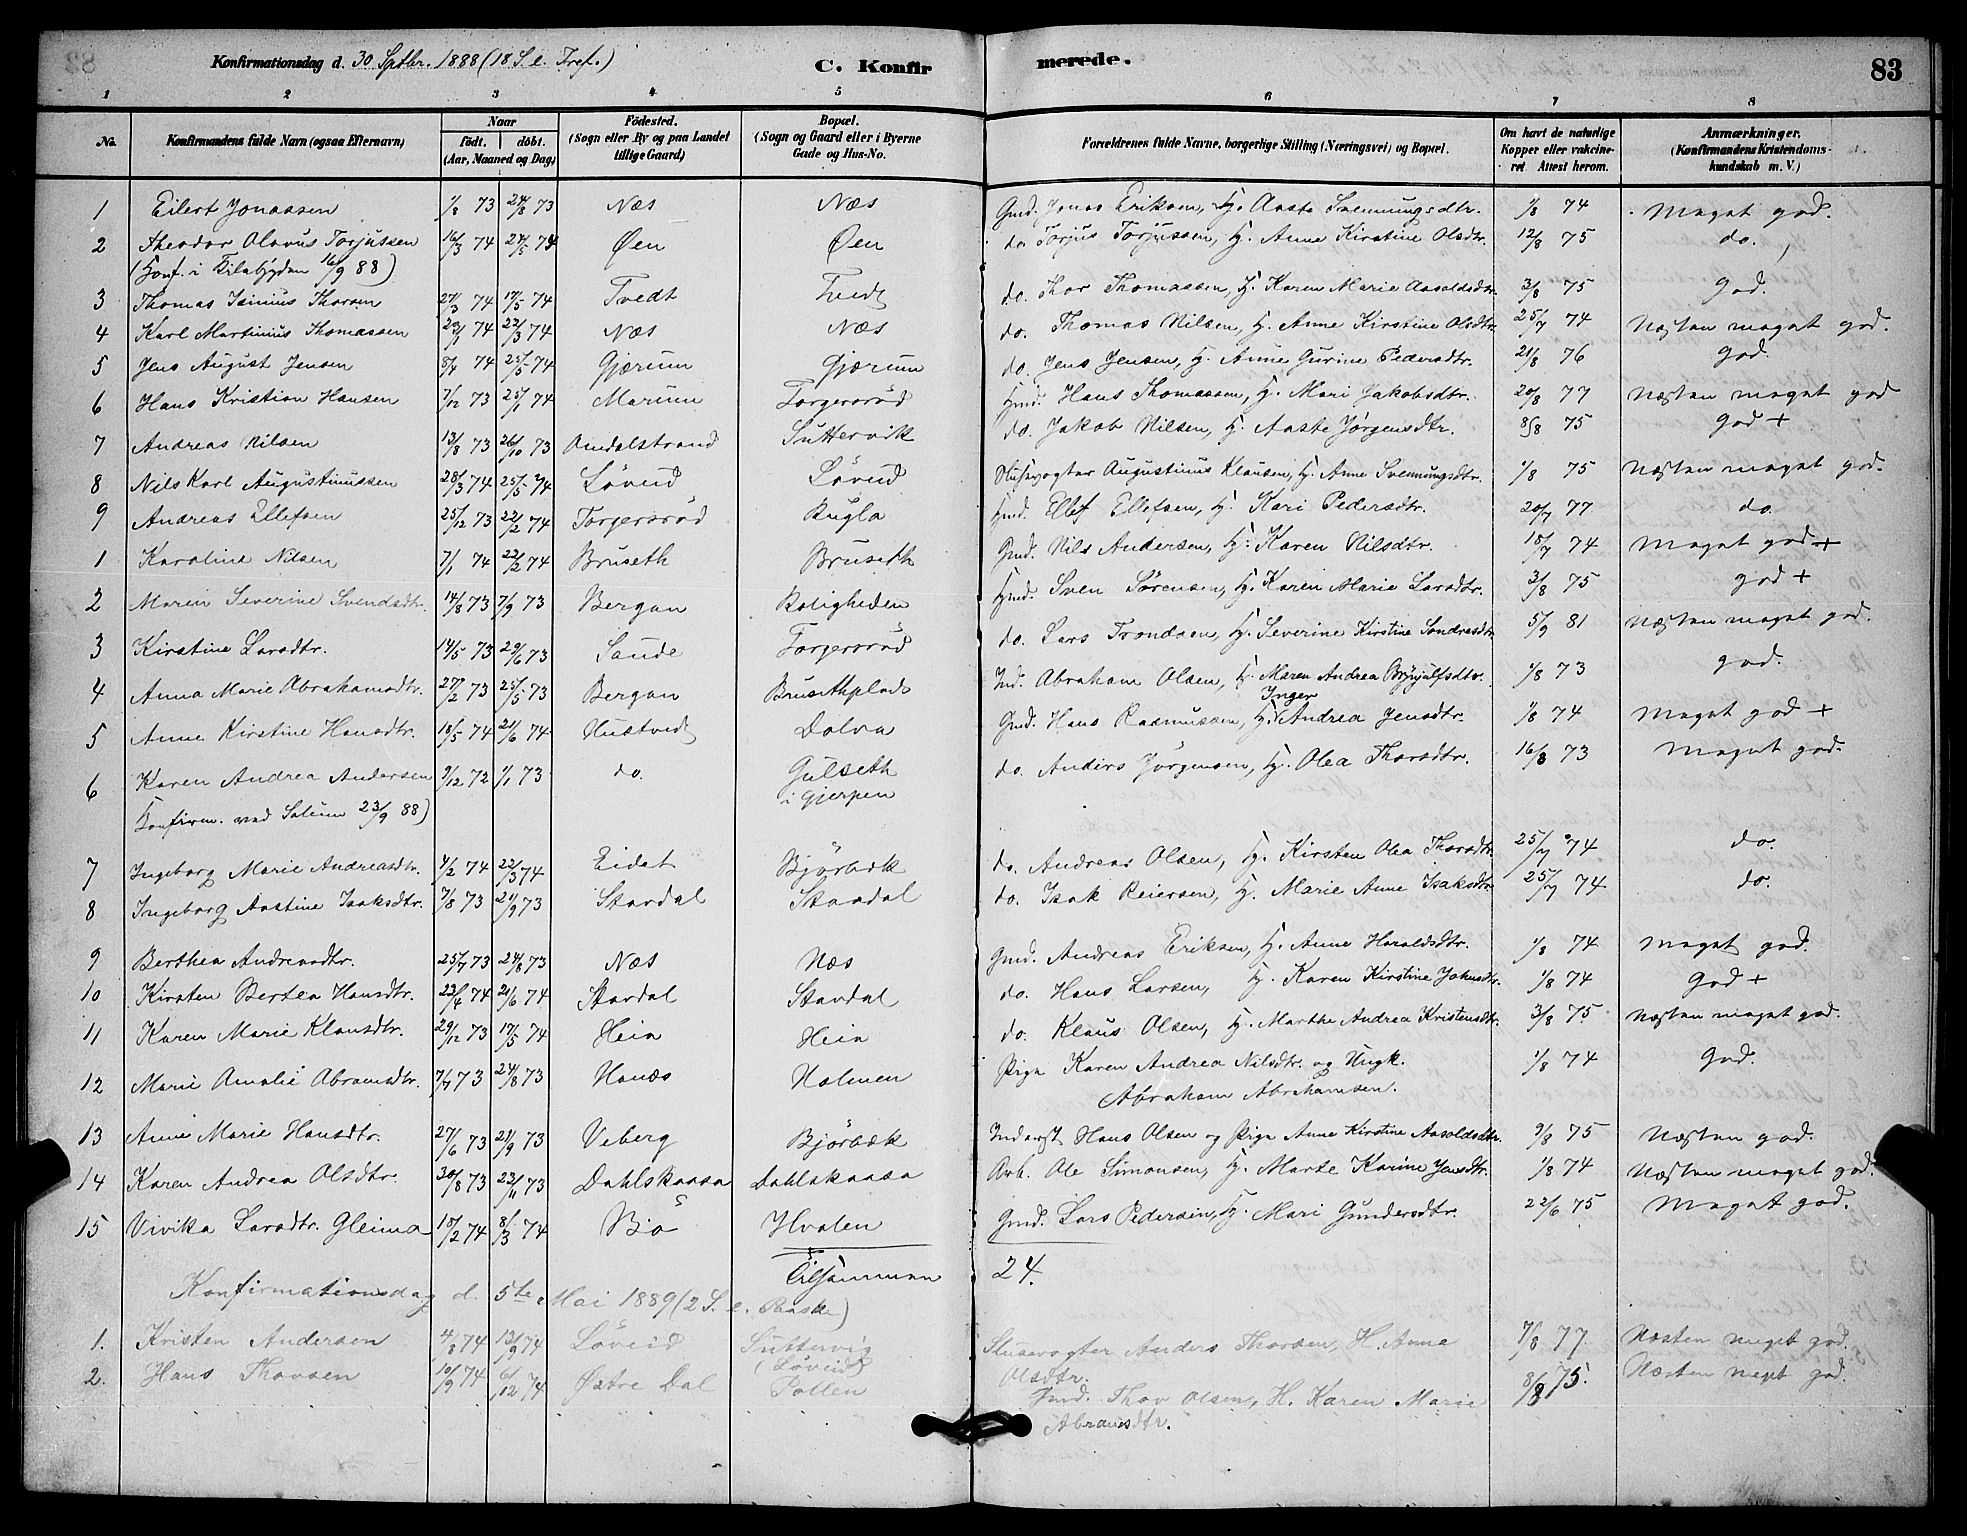 Konfirmationsdag d. 30 Septbr. 1888 (18 S. e. Tref.) C. Konfir merede. 83
1 2 3 4 5 6 7 8
No. Konfirmandens fulde Navn (ogsaa Efternavn) Naar födt. döbt. (Aar, Maaned og Dag) Födested. (Sogn eller By og paa Landet tillige Gaard) Bopæl. (Sogn og Gaard eller i Byerne Gade og Hus-No. Forældrenes fulde Navne, borgerlige Stilling (Næringsvei) og Bopæl. Om havt de naturlige Kopper eller vakcineret Attest herom. Anmærkninger. (Konfirmandens Kristendomskundskab m. V.)
1 Eilert Jonassen 1/8 73 24/8 73 Næs Næs Gmd. Jonas Eriksen, H. Aaste Svennungsdtr. 1/8 74 Meget god.
2 Theodor Olavus Torjussen 16/3 74 24/5 74 Øen Øen do. Torjus Torjussen, H. Anne Kirstine Olsdtr. 12/8 75 do.
(Konf. i Kilebygden 16/9 88)
3 Thomas Isinius Thorsen 27/3 74 17/5 74 Tvedt Tvedt do. Thor Thomassen, H. Karen Marie Aasoldsdtr. 3/8 75 God.
4 Karl Martinius Thomassen 23/1 74 22/3 74 Næs Næs do. Thomas Nilsen, H. Anne Kirstine Olsdtr. 25/7 74 Næsten meget god.
5 Jens August Jensen 8/4 74 25/5 74 Gjærum Gjærum do. Jens Jensen, H. Anne Gurine Pedersdtr. 21/8 76 God.
6 Hans Kristian Hansen 7/12 73 25/1 74 Marum Torgersrød Hmd. Hans Thomassen, H. Mari Jakobsdtr. 20/8 77 Næsten meget god
7 Andreas Nilsen 13/8 73 26/10 73 Omdalstrand Suttervik do. Jakob Nilsen, H. Aaste Jørgensdtr. 8/8 75 God +
8 Nils Karl Augustinussen 28/3 74 25/5 74 Löveid Löveid Slusevogter Augustinus Klausen, H. Anne Svennungsdtr. 1/8 75 Næsten meget god.
9 Andreas Ellefsen 25/12 73 22/2 74 Torgersröd Bugla Hmd. Ellef Ellefsen, H. Kari Pedersdtr. 20/7 77 do.
1 Karoline Nilsen 7/1 74 22/2 74 Bruseth Bruseth Gmd. Nils Andersen, H. Karen Nilsdtr. 18/7 74 Meget god +
2 Maren Severine Svendsdtr. 14/8 73 7/9 73 Bergan Roligheden Hmd. Sven Sörensen, H. Karen Marie Larsdtr. 3/8 75 god +
3 Kirstine Larsdtr. 14/5 73 29/6 73 Saude Torgersröd do. Lars Trondsen, H. Severine Kirstine Sondresdtr. 5/9 81 Næsten meget god.
4 Anna Marie Abrahamsdtr. 27/2 73 25/5 73 Bergan Brusethplads Ind. Abraham Olsen, H. Maren Andrea Brynjulfsdtr. 1/8 73 god.
5 Anne Kirstine Hansdtr. 18/5 74 21/6 74 Hustvedt Dalva Gmd. Hans Rasmussen, H. Inger Andrea Jensdtr. 1/8 74 Meget god +
6 Karen Andrea Andersen 9/12 72 1/1 73 do. Gulseth i Gjerpen do. Anders Jörgensen, H. Olea Thorsdtr. 16/8 73 Meget god.
Konfirm. ved Solum 23/9 88)
7 Ingeborg Marie Andreasdtr. 4/2 74 22/3 74 Eidet Bjørbæk do. Andreas Olsen, H. Kirsten Olea Thorsdtr. 25/7 74 do.
8 Ingeborg Aastine Isaksdtr. 7/8 73 21/9 73 Stavdal Stavdal do. Isak Reiersen, H. Marie Anne Isaksdtr. 25/7 74 do.
9 Berthea Andreasdtr. 25/7 73 24/8 73 Næs Næs Gmd. Andreas Eriksen, H. Anne Haraldsdtr. 1/8 74 Meget god.
10 Kirsten Bertea Hansdtr. 23/4 74 21/6 74 Stavdal Stavdal do. Hans Larsen, H. Karen Kirstine Johnsdtr. 1/8 74 God +
11 Karen Marie Klausdtr. 29/12 73 17/5 74 Heia Heia do. Klaus Olsen, H. Marthe Andrea Kristensdtr. 3/8 75 Næsten meget god.
12 Marie Amalie Abramsdtr. 7/7 73 24/8 73 Hanæs Holmen Pige Karen Andrea Nilsdtr. og Ungk. 1/8 74 God.
Abraham Abrahamsen.
13 Anne Marie Hansdtr. 27/6 73 21/9 73 Veberg Bjørbæk Inderst Hans Olsen og Pige Anne Kirstine Aasoldsdtr. 9/8 75 Næsten god.
14 Karen Andrea Olsdtr. 30/8 73 23/11 73 Dahlskaasa Dahlskaasa Arb. Ole Simonsen, H. Marte Karine Jensdtr. 1/8 74 Næsten meget god.
15 Vivika Larsdtr. Gleima 18/2 74 8/3 74 Bö Hvalen Gmd. Lars Pedersen, H. Mari Gundersdtr. 22/6 75 Meget god.
Tilsammen 24.
Konfirmationsdag d. 5te Mai 1889 (2 S. e. Paaske)
1. Kristen Andersen 4/8 74 13/9 74 Löveid Suttervig (Löveid) Slusevogter Anders Thorsen, H. Anne Olsdtr. 7/8 77. Næsten meget god.
2. Hans Thovsen 10/9 74 6/12 74 Østre Dal Pollen Gmd. Thov Olsen, H. Karen Marie Abramsdtr. 8/8 75. Næsten meget god.